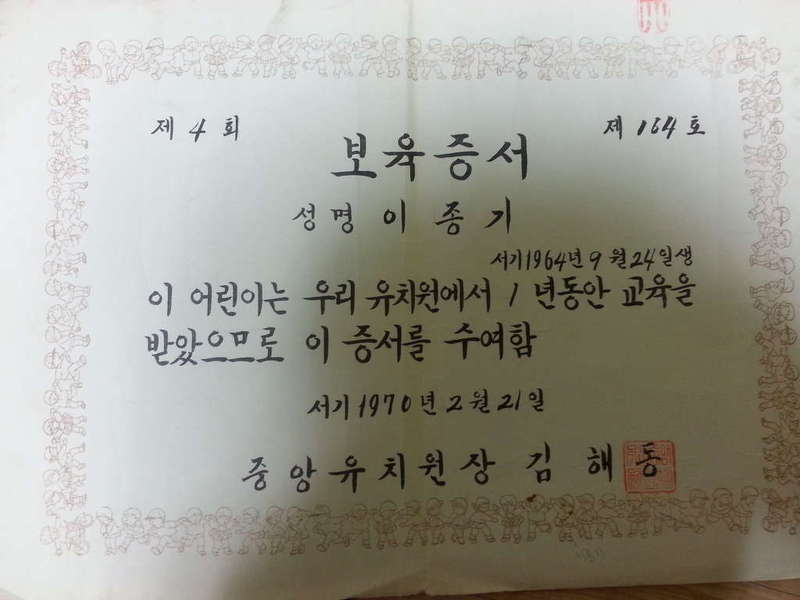 제 4 회
제 164 호
보육증서
성명 이종기
서기1964년 9월 24일생
이 어린이는 우리 유치원에서 1년동안 교육을
받았으므로 이 증서를 수여함
서기1970년 2월 21일
중앙유치원장 김해동